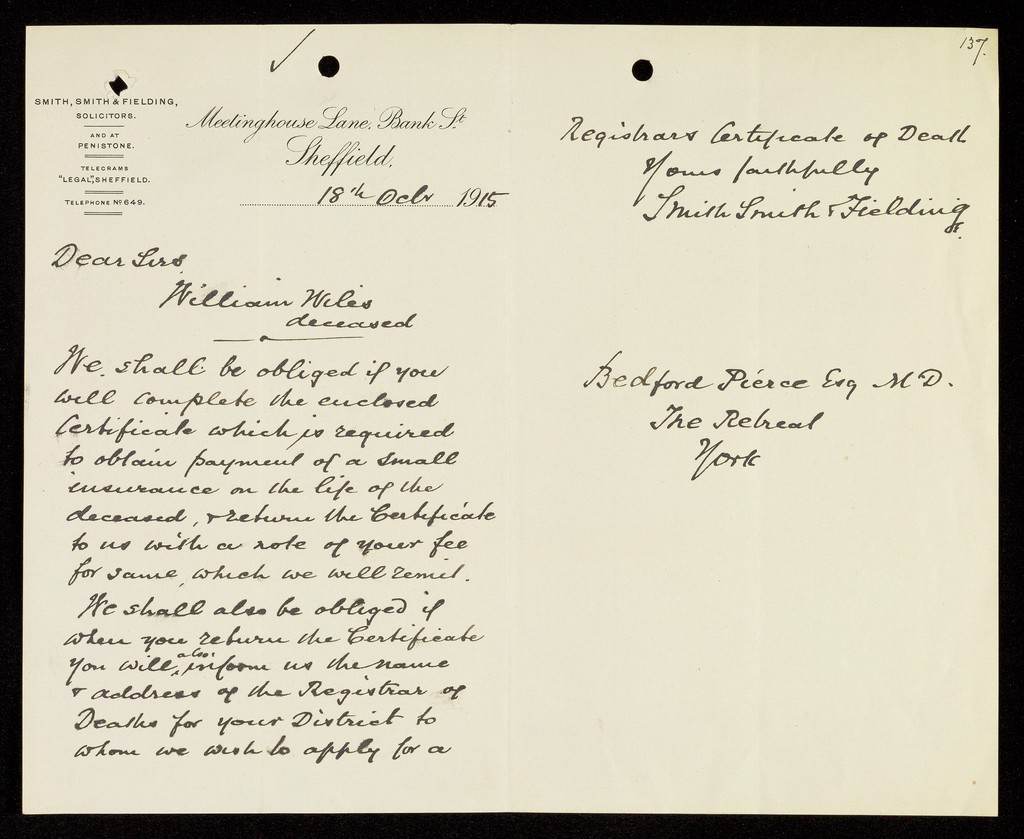 137.
SMITH, SMITH & FIELDING,
SOLICITORS.
AND AT
PENISTONE.
TELEGRAMS
"LEGAL", SHEFFIELD.
TELEPHONE Nº 649.
Meetinghouse Lane, Bank St.
Sheffield,
18th Octr 1915
Dear Sirs
William Wiles
deceased
We shall be obliged if you
will complete the enclosed
Certificate which is required
to obtain payment of a small
insurance on the life of the
deceased, & return the Certificate
to us with a note of your fee
for same, which we will remit.
We shall also be obliged if
when you return the Certificate
you will also inform us the name
& address of the Registrar of
Deaths for your District to
whom we wish to apply for a
Registrars Certificate of Death
Yours faithfully
Smith Smith & Fielding
Bedford Pierce Esq M.D.
The Retreat
York